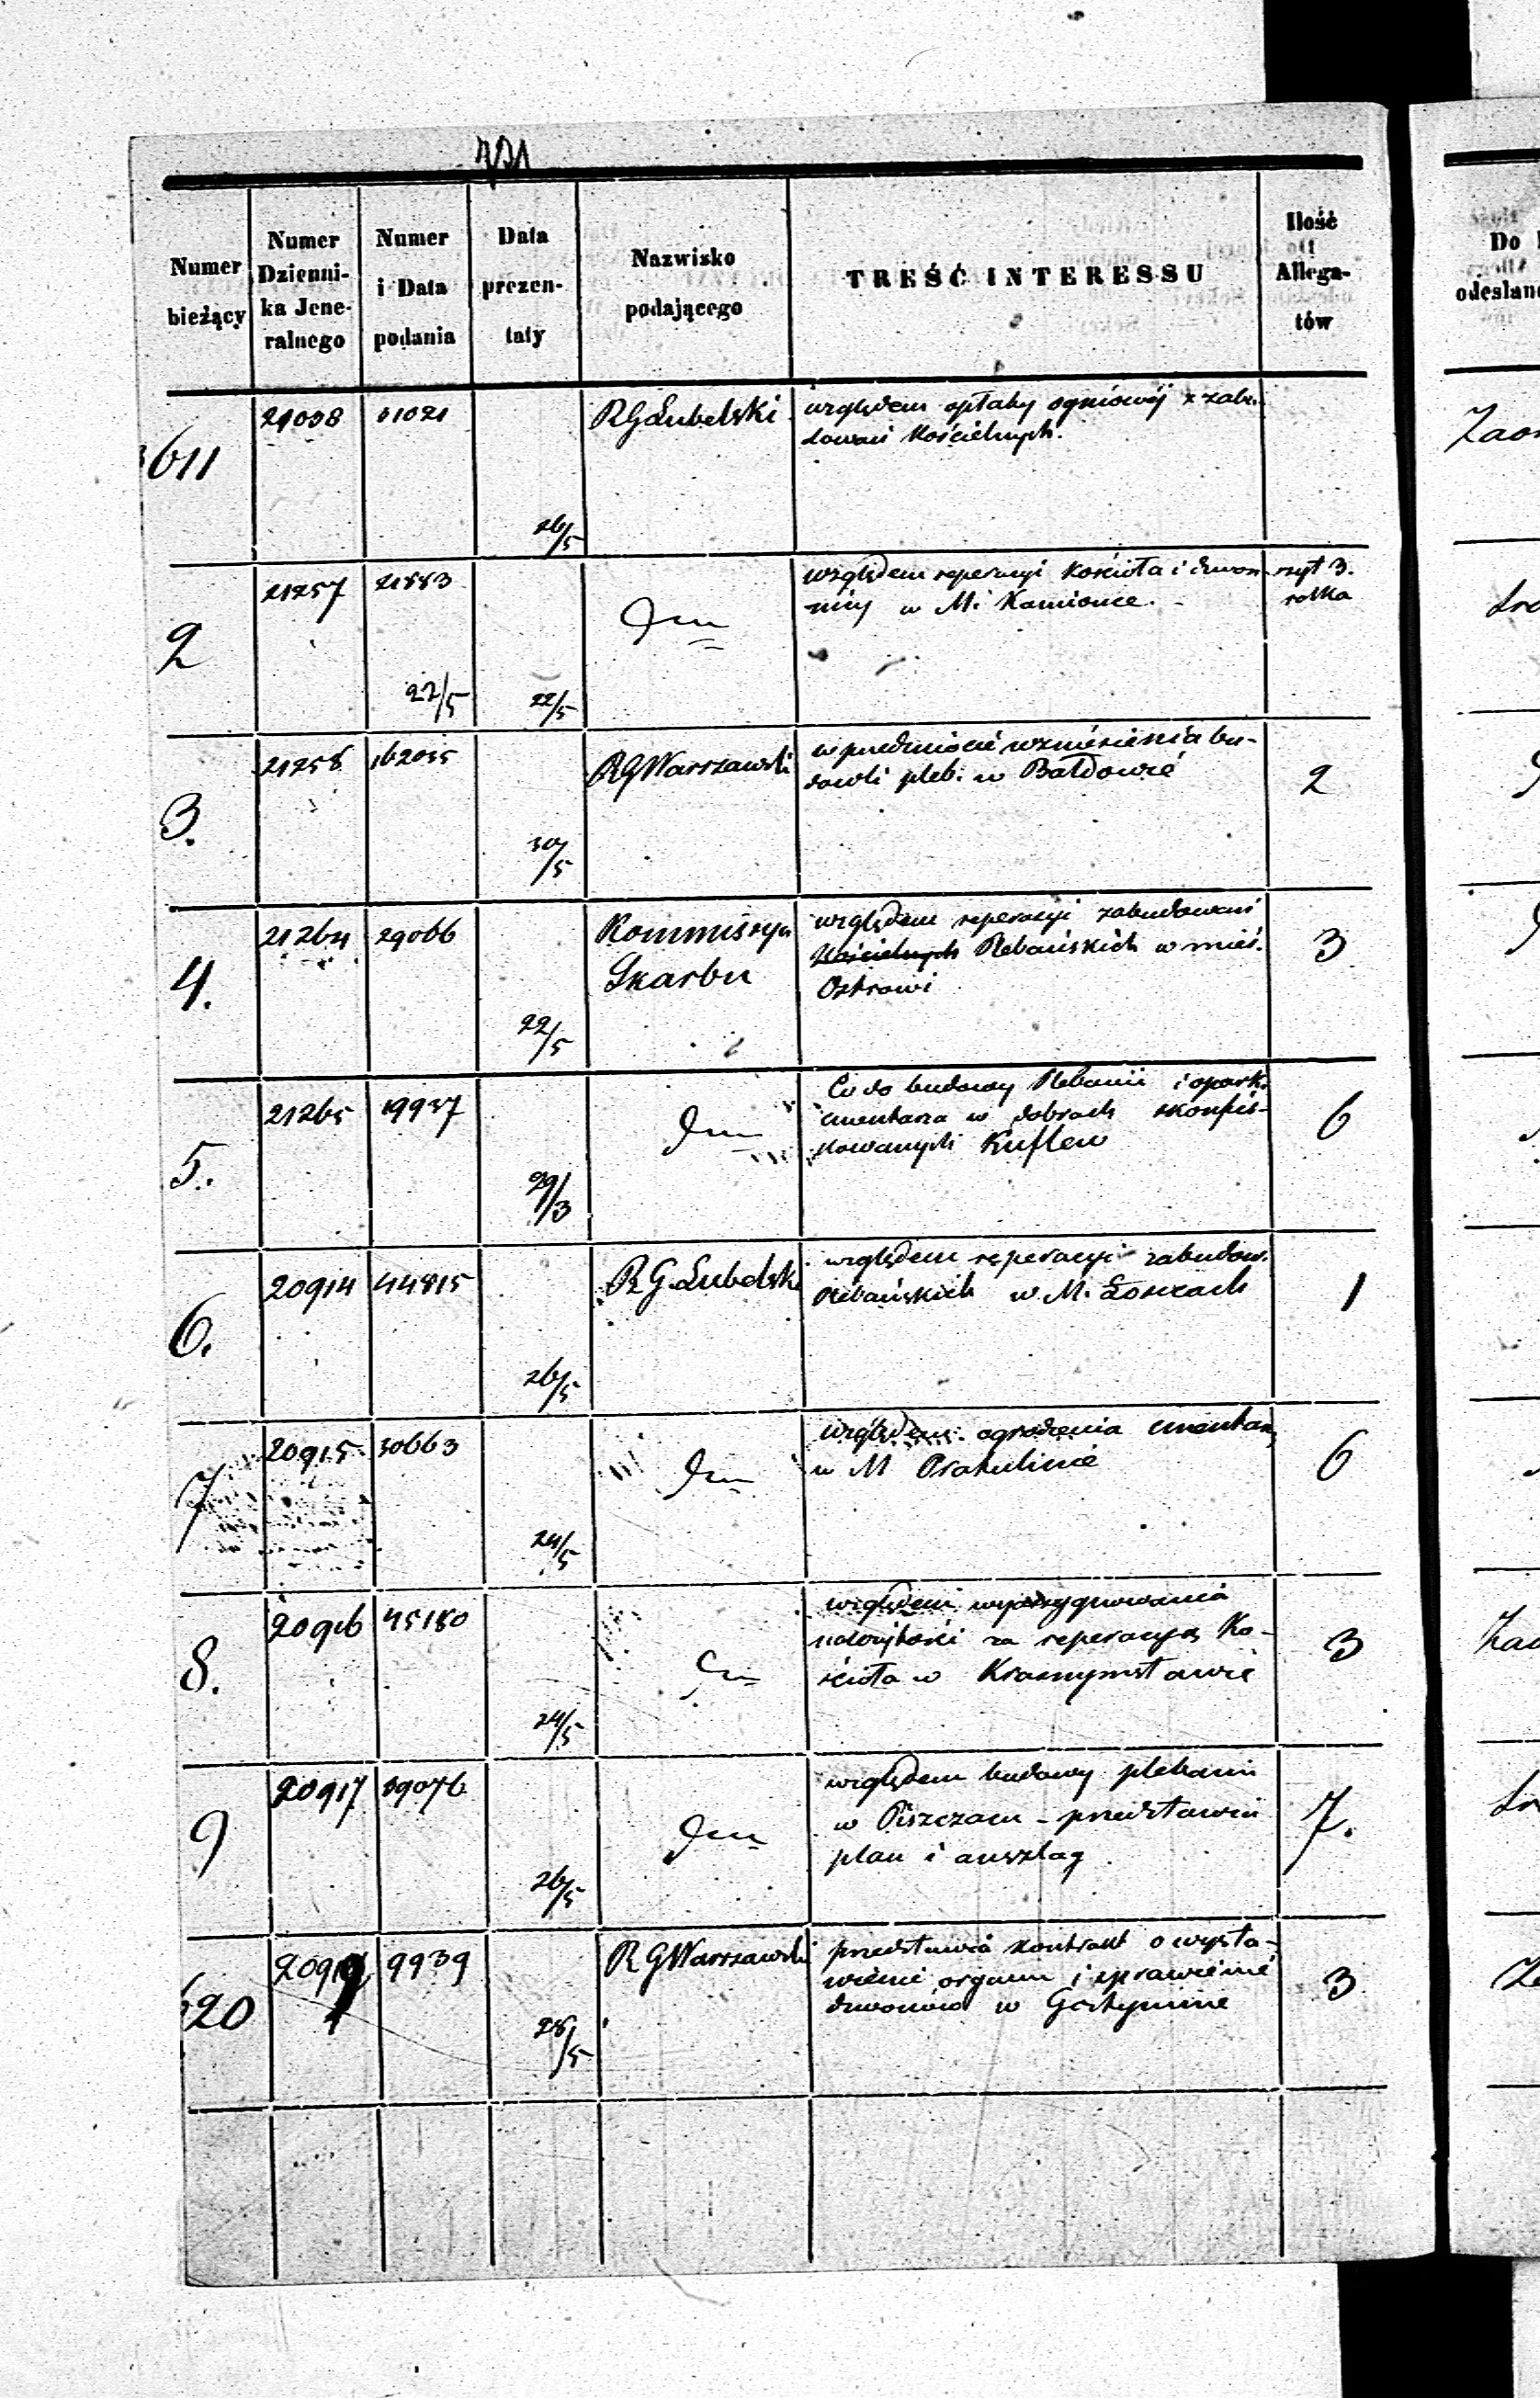 Numer bieżący
Numer Dzienni-ka Jene-ralnego
Numer i Data podania
Data prezen-taty
Nazwisko podającego
TREŚĆ INTERESSU
Ilość Allega-tów
Do
odesłano
611 21038 31021 26/5 RG Lubelski
względem opłaty ogniowéj z zabu-
dowań Kościelnych.
2 21257 21883 22/5 22/5 Dtto
względem reperacyi Kościoła i dzwon-
nicy w M. Kamionce.
szyt 3.
3. 21258 162035 30/5 RG Warszawski
w przedmiocie wzniesienia bu-
dowli pleb. w Bałdowie
2
4. 21264 29066 22/5 Kommissya
Skarbu
względem reperacyi zabudowań
Kościelnych Plebańskich w mieś.
Ostrowi
3
5. 21265 19937 29/3 Dtto
Co do budowy Plebanii i opark.
cmentarza w dobrach skonfis-
kowanych Kuflew
6
6. 20914 44815 26/5 RG Lubelski
względem reperacyi zabudow.
Plebańskich w M. Łosicach
1
7 20915 30663 24/5 Dtto
względem ogrodzenia cmentarz
w M Pratulinie
6
8. 20916 45180 24/5 Dtto
względem wyassygnowania
należytości za reperacyą Ko-
ścioła w Krasnymstawie
3
9 20917 39076 26/5 Dtto
względem budowy plebanii
w Piszczacu - przedstawia
plan i anszlag
7.
620 20919 9939 28/5 RG Warszawski
przedstawia kontrakt o wysta-
wienie organu i sprawienie
dzwonów w Gostyninie
3